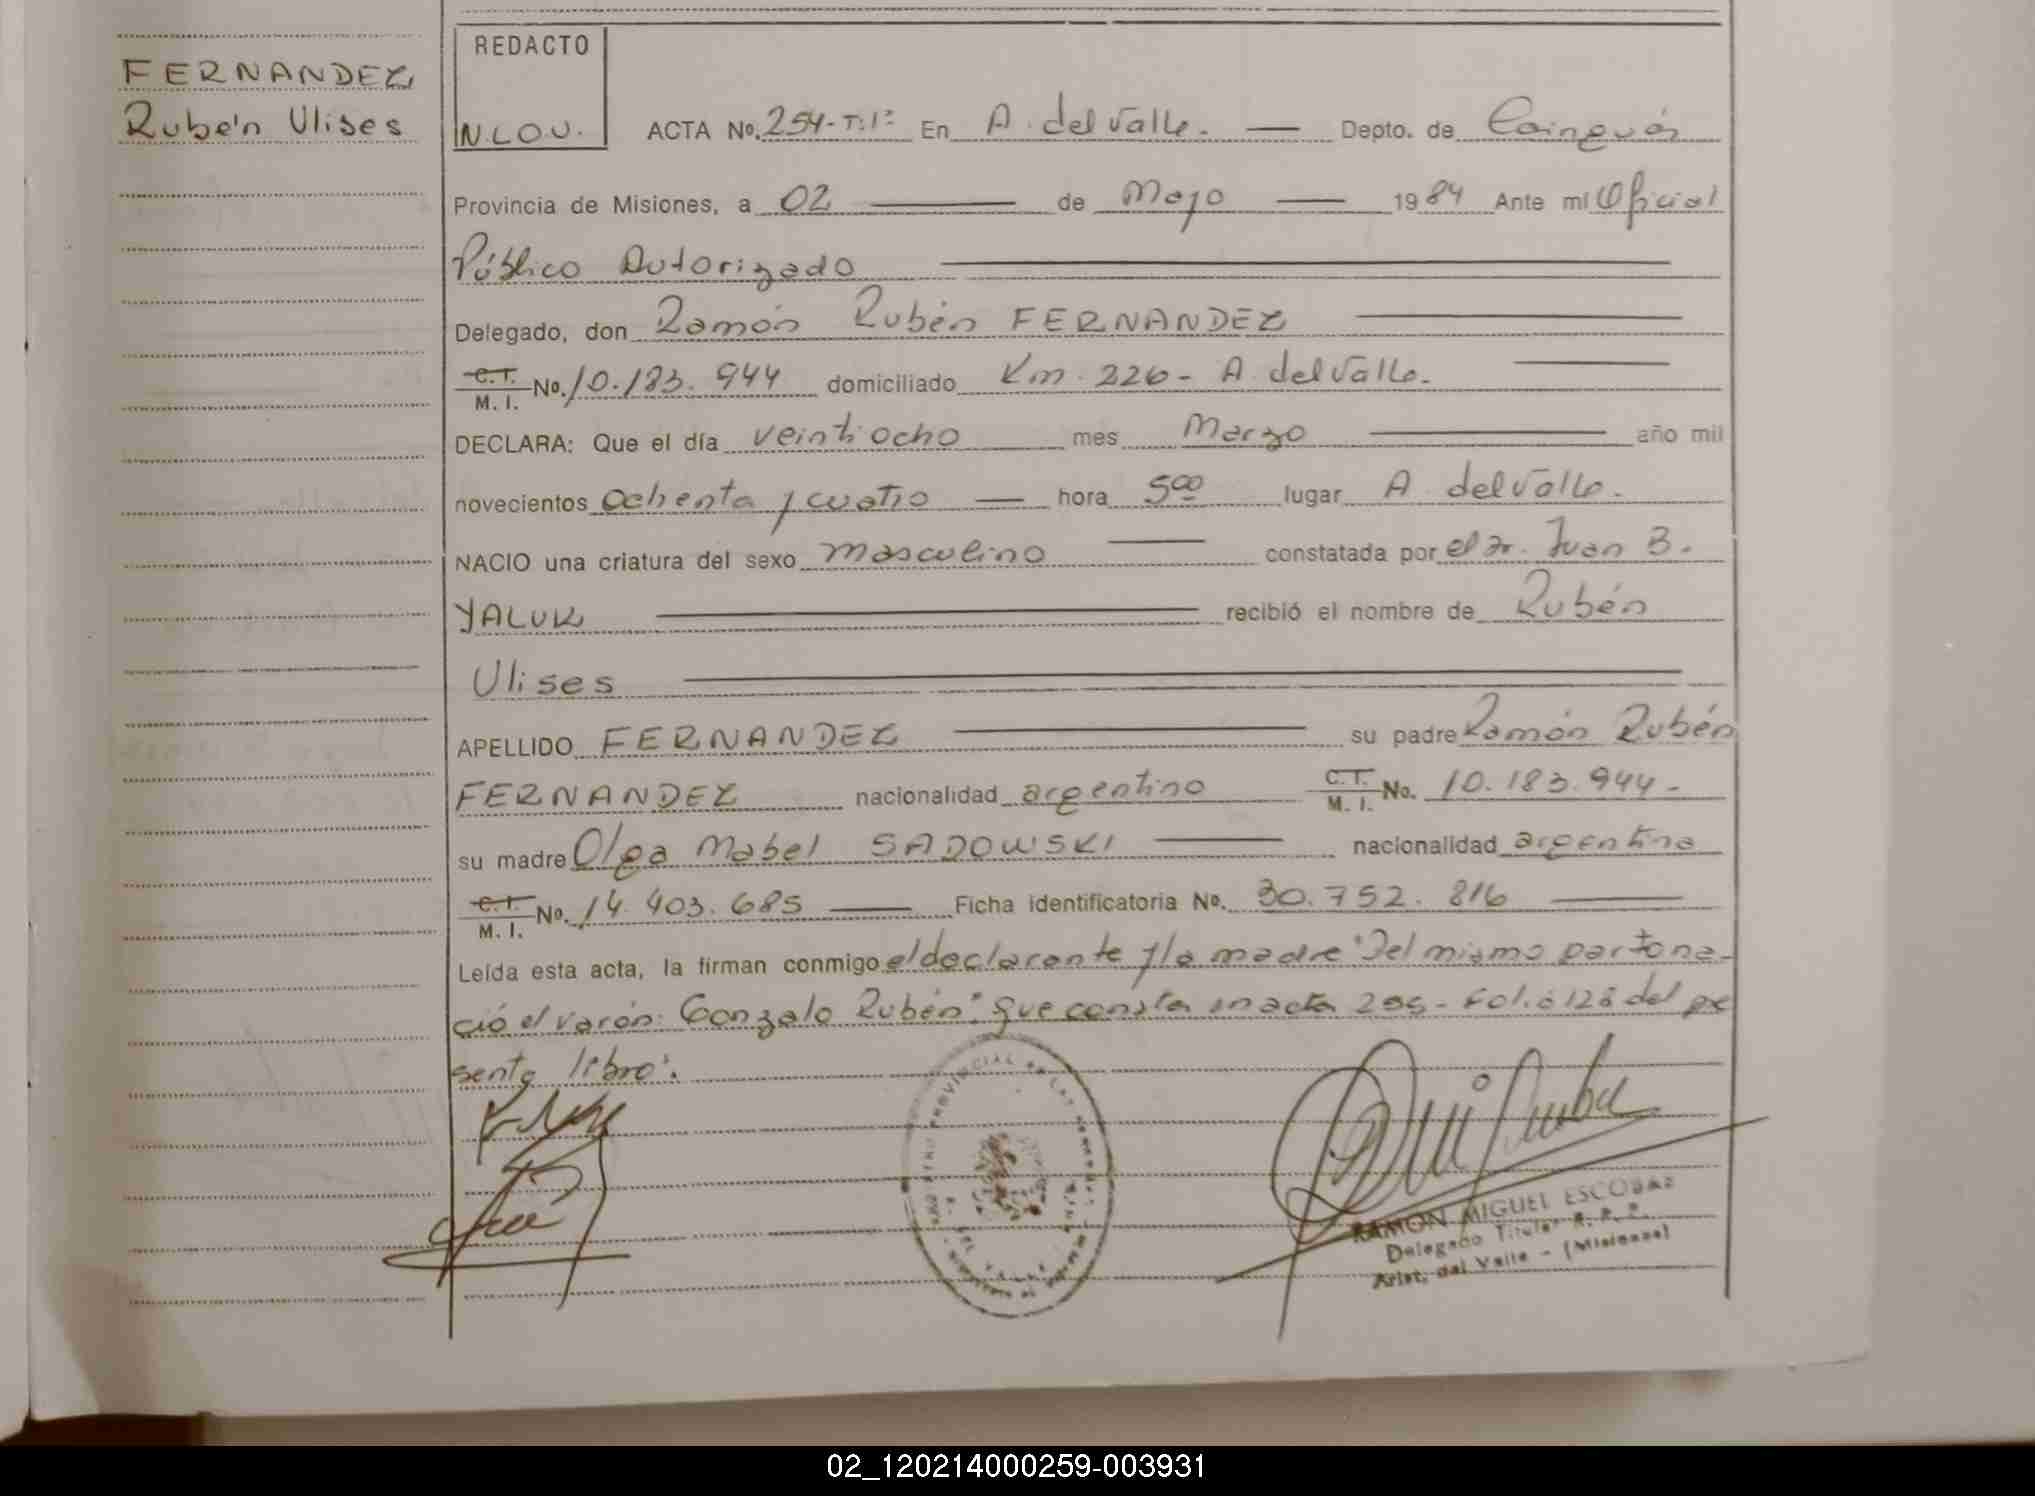 FERNANDEZ
Rubén Ulises
REDACTO
N.L.O.U.
ACTA No. 254-T:1º En A. del Valle. Depto. de Cainguás
Provincia de Misiones, a 02 de Mayo 1984 Ante mi Oficial
Público Autorizado
Delegado, don Ramón Rubén FERNANDEZ
C.T.
M. I. No. 10.183.944 domiciliado Km. 226- A. del Valle.
DECLARA: Que el día veintiocho mes Marzo año mil
novecientos ochenta y cuatro hora 5⁰⁰ lugar A del Valle.
NACIO una criatura del sexo masculino constatada por el Dr. Juan B.
YALUK recibió el nombre de Rubén
Ulises
APELLIDO FERNANDEZ su padre Ramón Rubén
FERNANDEZ nacionalidad argentino C.T. M. I. No. 10.183.944.
su madre Olga Mabel SADOWSKI nacionalidad argentina
C.T.
M. I. No. 14.403.685 Ficha identificatoria No. 30.752.816
Leída esta acta, la firman conmigo el declarante y la madre "Del mismo parto na-
ció el varón: Gonzalo Rubén" que consta en acta 255- Folio 128 del pre
sente libro.
RAMON MIGUEL ESCOBAR
Delegado Titular R. P. P.
Arist. del Valle - (Misiones)
02_120214000259-003931